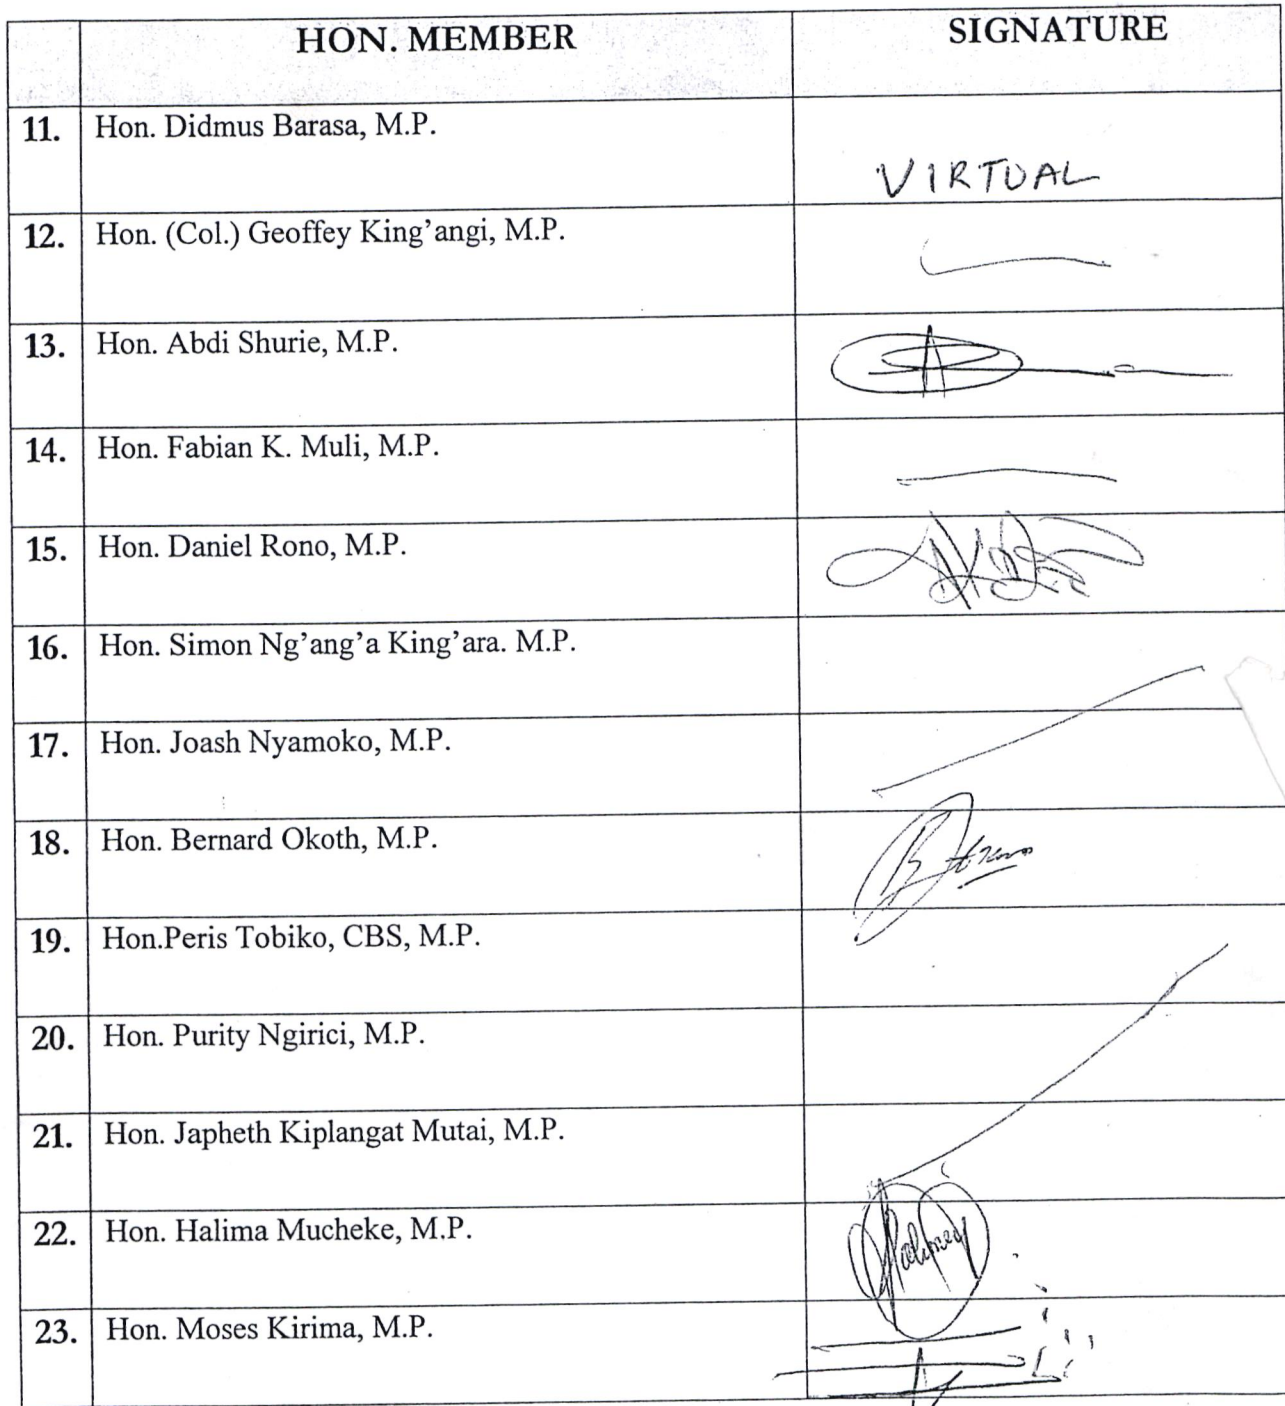 HON. MEMBER SIGNATURE
11. Hon. Didmus Barasa, M.P. VIRTUAL
12. Hon. (Col.) Geoffey King’angi, M.P.
13. Hon. Abdi Shurie, M.P.
14. Hon. Fabian K. Muli, M.P.
15. Hon. Daniel Rono, M.P.
16. Hon. Simon Ng’ang’a King’ara. M.P.
17. Hon. Joash Nyamoko, M.P.
18. Hon. Bernard Okoth, M.P.
19. Hon.Peris Tobiko, CBS, M.P.
20. Hon. Purity Ngirici, M.P.
21. Hon. Japheth Kiplangat Mutai, M.P.
22. Hon. Halima Mucheke, M.P.
23. Hon. Moses Kirima, M.P.